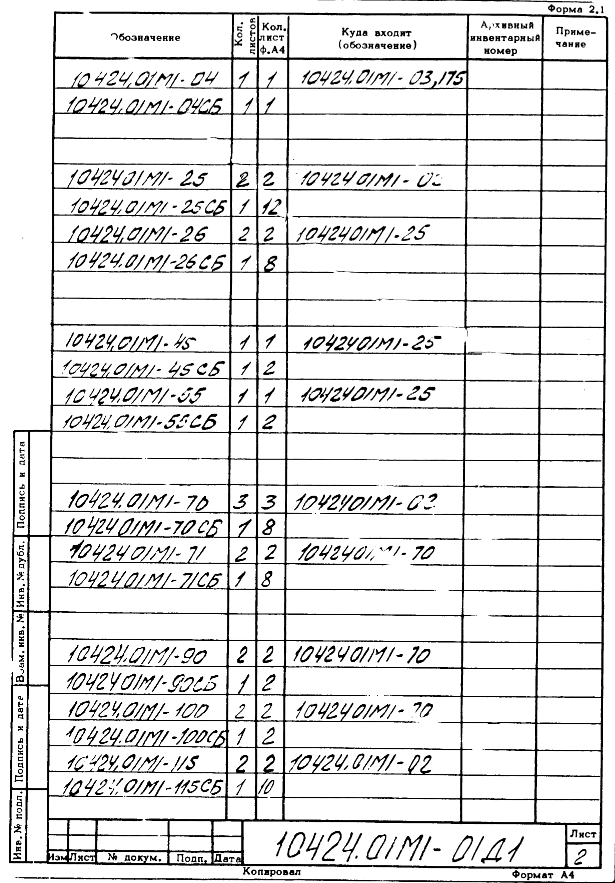 Форма 2.1
Обозначение Кол. листов Кол. лист ф.А4 Куда входит (обозначение) Архивный инвентарный номер Примечание
10424.01М1-04 1 1 10424.01М1-03,175
10424.01М1-04СБ 1 1
1042401М1-25 2 2 1042401М1-
10424.01М1-25СБ 1 12
10424.01М1-26 2 2 1042401М1-25
10424.01М1-26СБ 1 8
10424.01М1-45 1 1 1042401М1-25
10424.01М1-45СБ 1 2
10424.01М1-55 1 1 1042401М1-25
10424.01М1-55СБ 1 2
10424.01М1-70 3 3 1042401М1-03
1042401М1-70СБ 1 8
1042401М1-71 2 2 1042401М1-70
10424.01М1-71СБ 1 8
10424.01М1-90 2 2 1042401М1-70
1042401М1-90СБ 1 2
10424.01М1-100 2 2 1042401М1-70
10424.01М1-100СБ 1 2
10424.01М1-115 2 2 10424.01М1-02
10424.01М1-115СБ 1 10
Подпись и дата
Инв. № дубл.
Взам. инв. №
Подпись и дата
Инв. № подл.
Изм Лист № докум. Подп. Дата
10424.01М1-01Д1
Лист
2
Копировал Формат А4